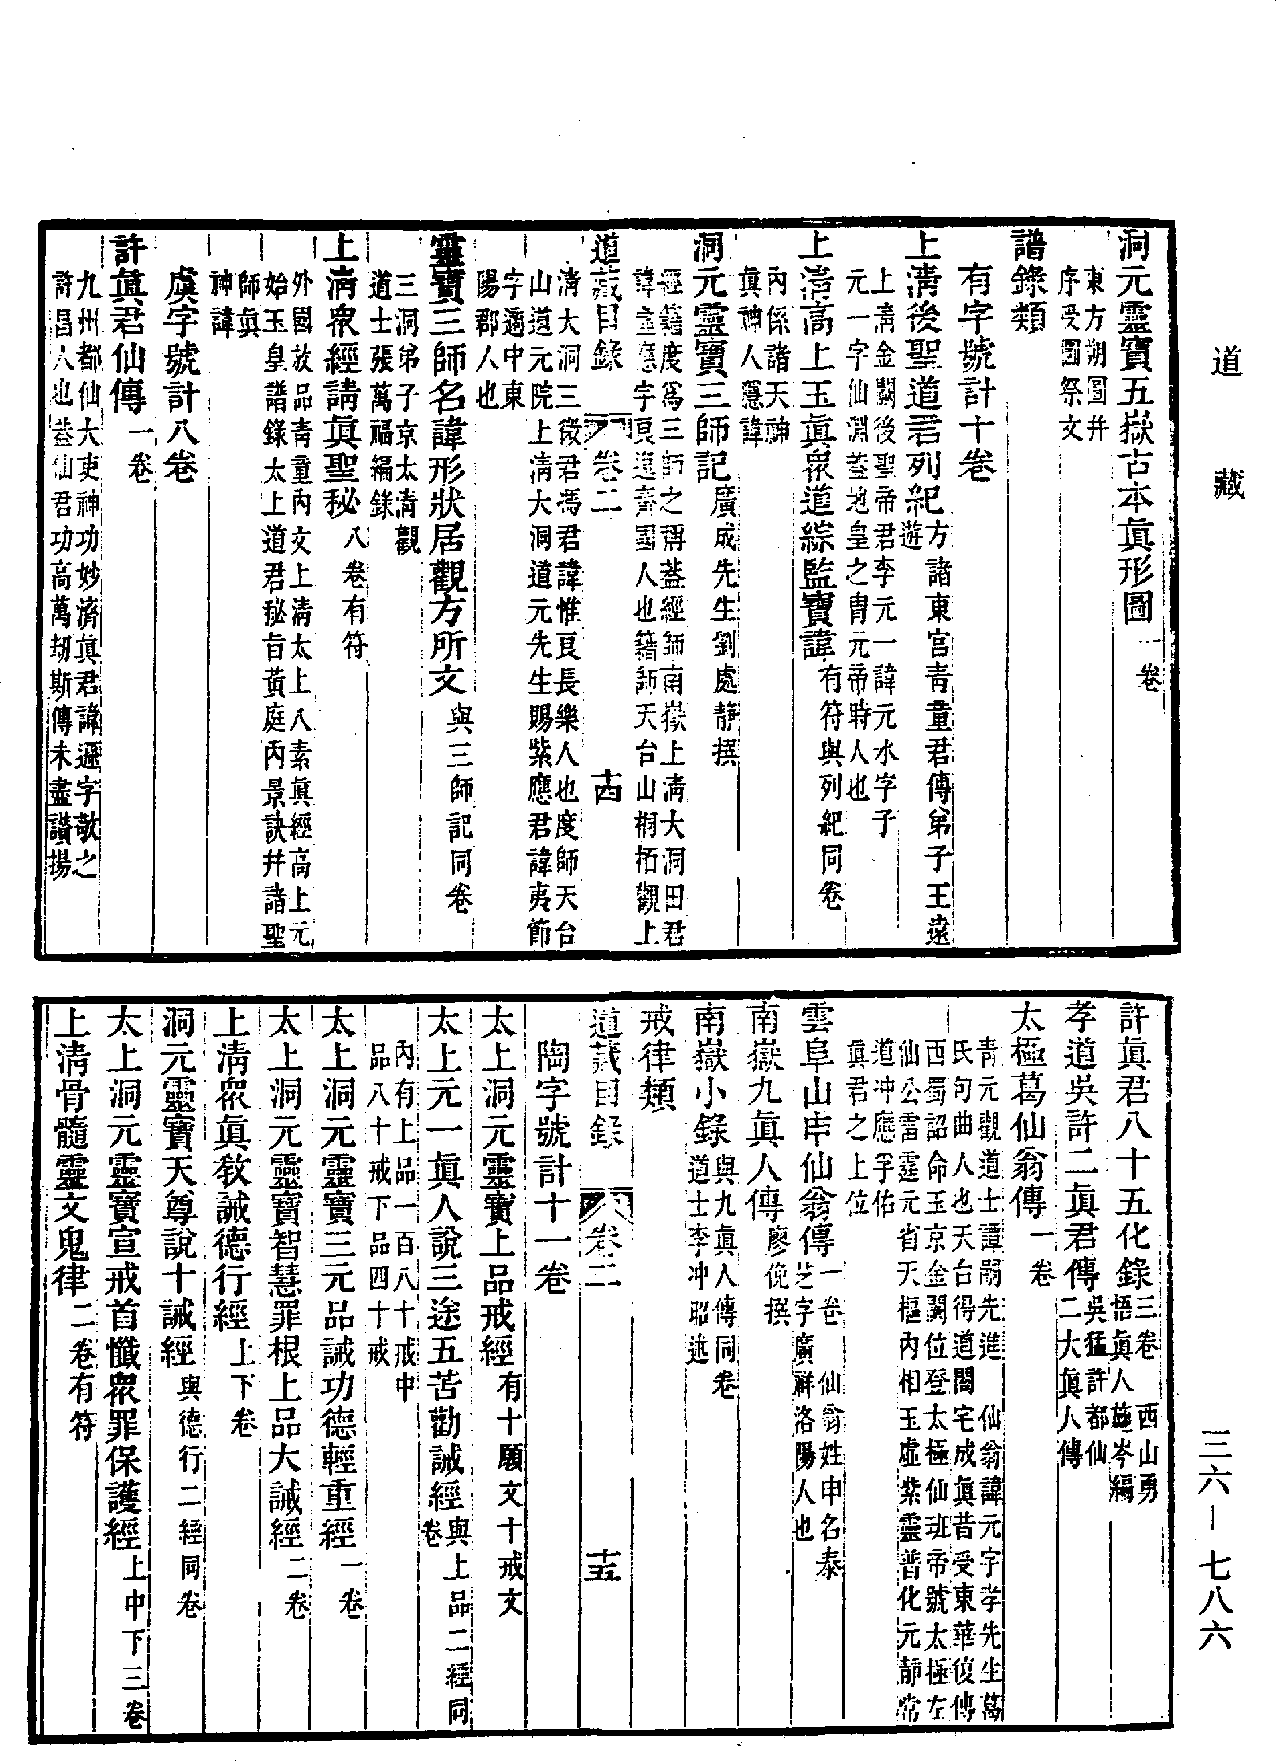 道藏
三六—七八六
洞元靈寶五嶽古本眞形圖一卷
東方朔圖幷
序受圖祭文
譜錄類
有字號計十卷
上淸後聖道君列紀方諸東宫靑童君傳弟子王遠
遊
上淸金闕後聖帝君李元一諱元水字子
元一字仙淵蓋地皇之胄元帝時人也
上淸高上玉眞衆道綜監寶諱有符與列紀同卷
內係諸天神
眞神人隱諱
洞元靈寶三師記廣成先生劉處靜撰
經籍度爲三師之稱蓋經師南嶽上淸大洞田君
諱虛應字良逸齊國人也籍師天台山桐柏觀上
道藏目錄 卷二 十四
淸大洞三徵君馮君諱惟良長樂人也度師天台
山道元院上淸大洞道元先生賜紫應君諱夷節
字適中東
陽郡人也
靈寶三師名諱形狀居觀方所文與三師記同卷
三洞弟子京太淸觀
道士張萬福編錄
上淸衆經請眞聖秘八卷有符
外國放品靑童內文上淸太上八素眞經高上元
始玉皇譜錄太上道君秘旨黃庭內景訣幷諸聖
師眞
神諱
虞字號計八卷
許眞君仙傳一卷
九州都仙大吏神功妙濟眞君諱遜字敬之
許昌人也蓋仙君功高萬劫斯傳未盡讚揚
許眞君八十五化錄三卷 西山勇
悟眞人施岑編
孝道吳許二眞君傳吳猛許都仙
二大眞人傳
太極葛仙翁傳一卷
靑元觀道士譚嗣先進 仙翁諱元字孝先生葛
氏句曲人也天台得道閤宅成眞昔受東華復傳
西蜀詔命玉京金闕位登太極仙班帝號太極左
仙公雷霆元省天樞內相玉虛紫靈普化元靜常
道冲應孚佑
眞君之上位
雲阜山申仙翁傳一卷 仙翁姓申名泰
芝字廣祥洛陽人也
南嶽九眞人傳廖侁撰
南嶽小錄與九眞人傳同卷
道士李冲昭述
戒律類
道藏目錄 卷二 十五
陶字號計十一卷
太上洞元靈寶上品戒經有十願文十戒文
太上元一眞人說三途五苦勸誡經與上品二經同
卷
內有上品一百八十戒中
品八十戒下品四十戒
太上洞元靈寶三元品誡功德輕重經一卷
太上洞元靈寶智慧罪根上品大誡經二卷
上淸衆眞敎誡德行經上下卷
洞元靈寶天尊說十誡經與德行二經同卷
太上洞元靈寶宣戒首懺衆罪保護經上中下三卷
上淸骨髓靈文鬼律二卷有符